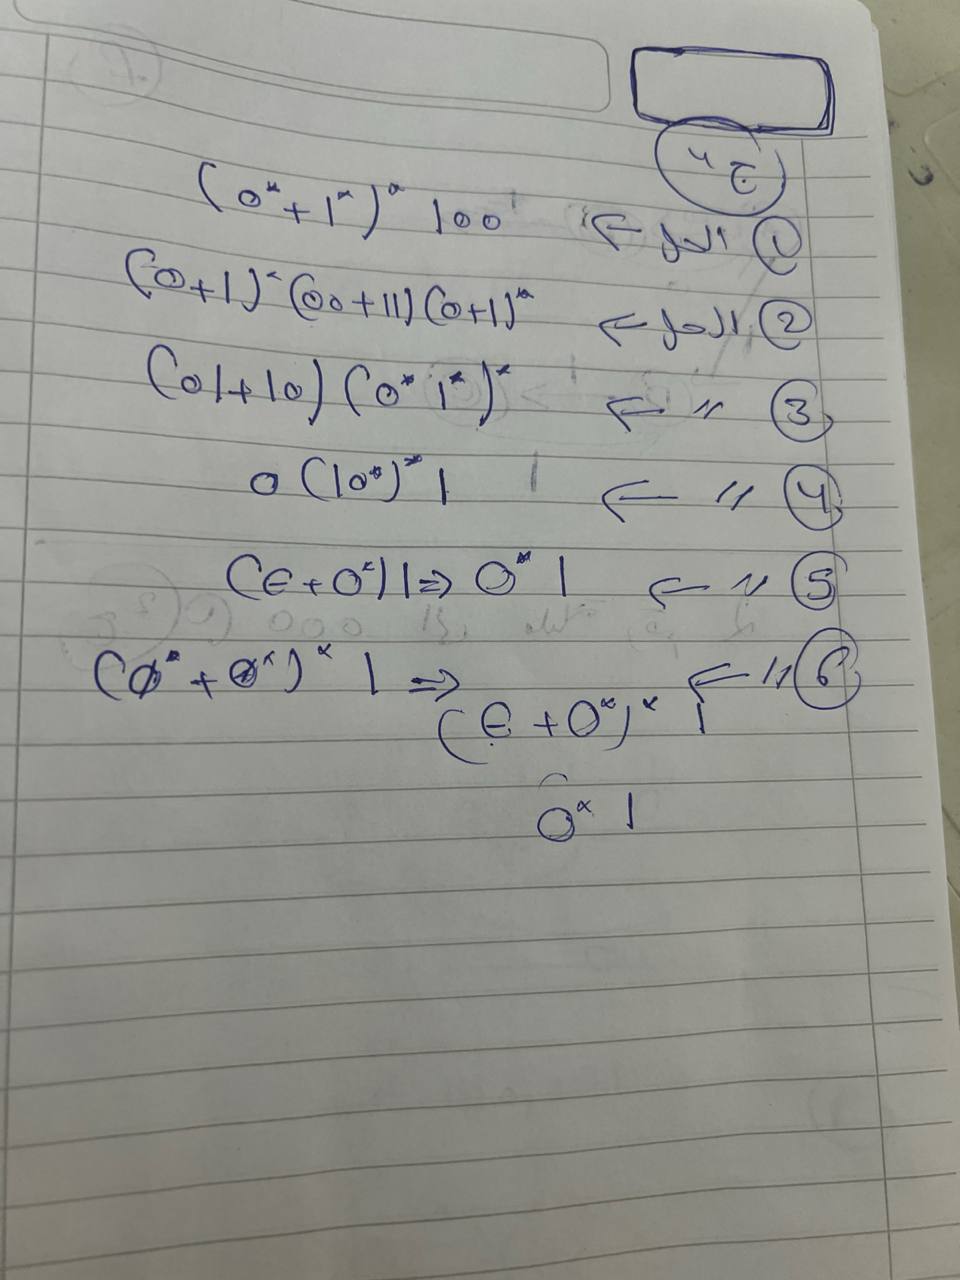 ج ٤
① الحل ← (0* + 1*)* 100
② الحل ← (0+1)* (00+11) (0+1)*
③ 〃 ← (01+10) (0* 1*)*
④ 〃 ← 0 (10*)* 1
⑤ 〃 ← (ϵ + 0*) 1 ⇒ 0* 1
⑥ 〃 ← (Ø* + 0*)* 1 ⇒
(ϵ + 0*)* 1
0* 1